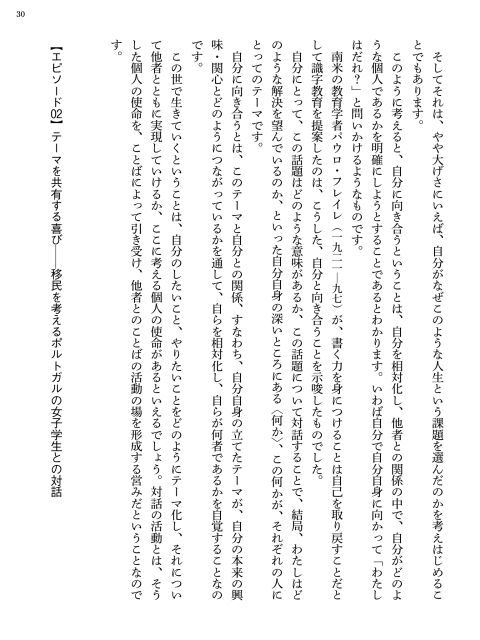 30
そしてそれは、やや大げさにいえば、自分がなぜこのような人生という課題を選んだのかを考えはじめるこ
とでもあります。
このように考えると、自分に向き合うということは、自分を相対化し、他者との関係の中で、自分がどのよ
うな個人であるかを明確にしようとすることであるとわかります。いわば自分で自分自身に向かって「わたし
はだれ？」と問いかけるようなものです。
南米の教育学者パウロ・フレイレ（一九二一―九七）が、書く力を身につけることは自己を取り戻すことだと
して識字教育を提案したのは、こうした、自分と向き合うことを示唆したものでした。
自分にとって、この話題はどのような意味があるか、この話題について対話することで、結局、わたしはど
のような解決を望んでいるのか、といった自分自身の深いところにある〈何か〉、この何かが、それぞれの人に
とってのテーマです。
自分に向き合うとは、このテーマと自分との関係、すなわち、自分自身の立てたテーマが、自分の本来の興
味・関心とどのようにつながっているかを通して、自らを相対化し、自らが何者であるかを自覚することなの
です。
この世で生きていくということは、自分のしたいこと、やりたいことをどのようにテーマ化し、それについ
て他者とともに実現していけるか、ここに考える個人の使命があるといえるでしょう。対話の活動とは、そう
した個人の使命を、ことばによって引き受け、他者とのことばの活動の場を形成する営みだということなので
す。
【エピソード02】テーマを共有する喜び――移民を考えるポルトガルの女子学生との対話